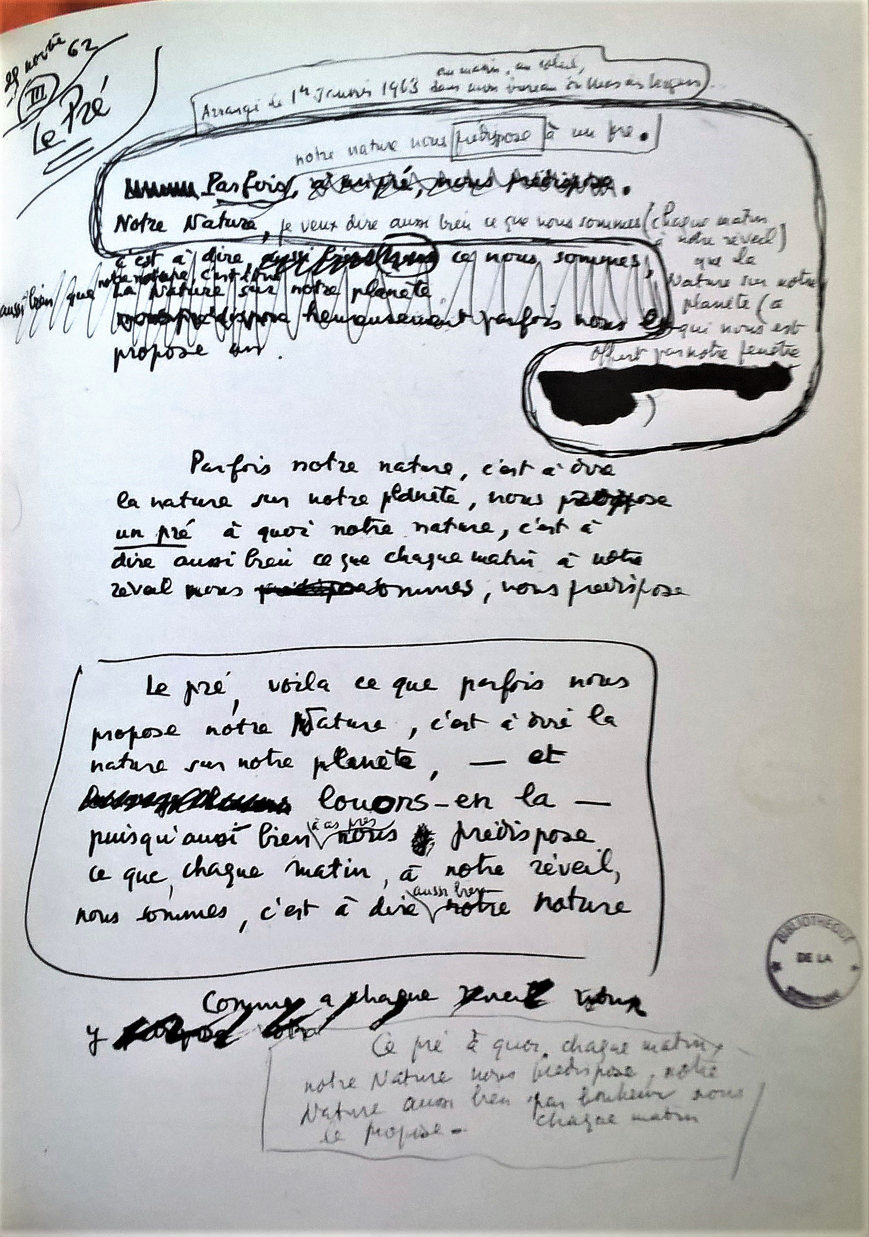 29 nov 62
III
Le Pré
au matin, au soleil,
Arrangé le 1er Janvier 1963 dans mon bureau du Mas des Vergers
notre nature nous prédispose à un pré.
Parfois, à un pré, nous prédispose.
Notre Nature, je veux dire aussi bien ce que nous sommes (chaque matin
à notre réveil)
que la
Nature sur notre
planète (a
qui nous est
offert par notre fenêtre
)
c'est à dire aussi bien ce nous sommes,
notre nature c'est
aussi bien que
La Nature sur notre planète
heureusement parfois nous le
propose un.
Parfois notre nature, c'est à dire
la nature sur notre planète, nous propose
un pré à quoi notre nature, c'est à
dire aussi bien ce que chaque matin à notre
réveil nous prédispose sommes, nous prédispose
Le pré, voilà ce que parfois nous
propose notre Nature, c'est à dire la
nature sur notre planète, — et
louons-en la —
puisqu'aussi bien à ces prés nous prédispose
ce que, chaque matin, à notre réveil,
nous sommes, c'est à dire aussi bien notre nature
Comme a chaque réveil
y
Ce pré à quoi, chaque matin,
notre Nature nous prédispose, notre
Nature aussi bien par bonheur nous
le propose - chaque matin
BIBLIOTHEQUE
DE LA